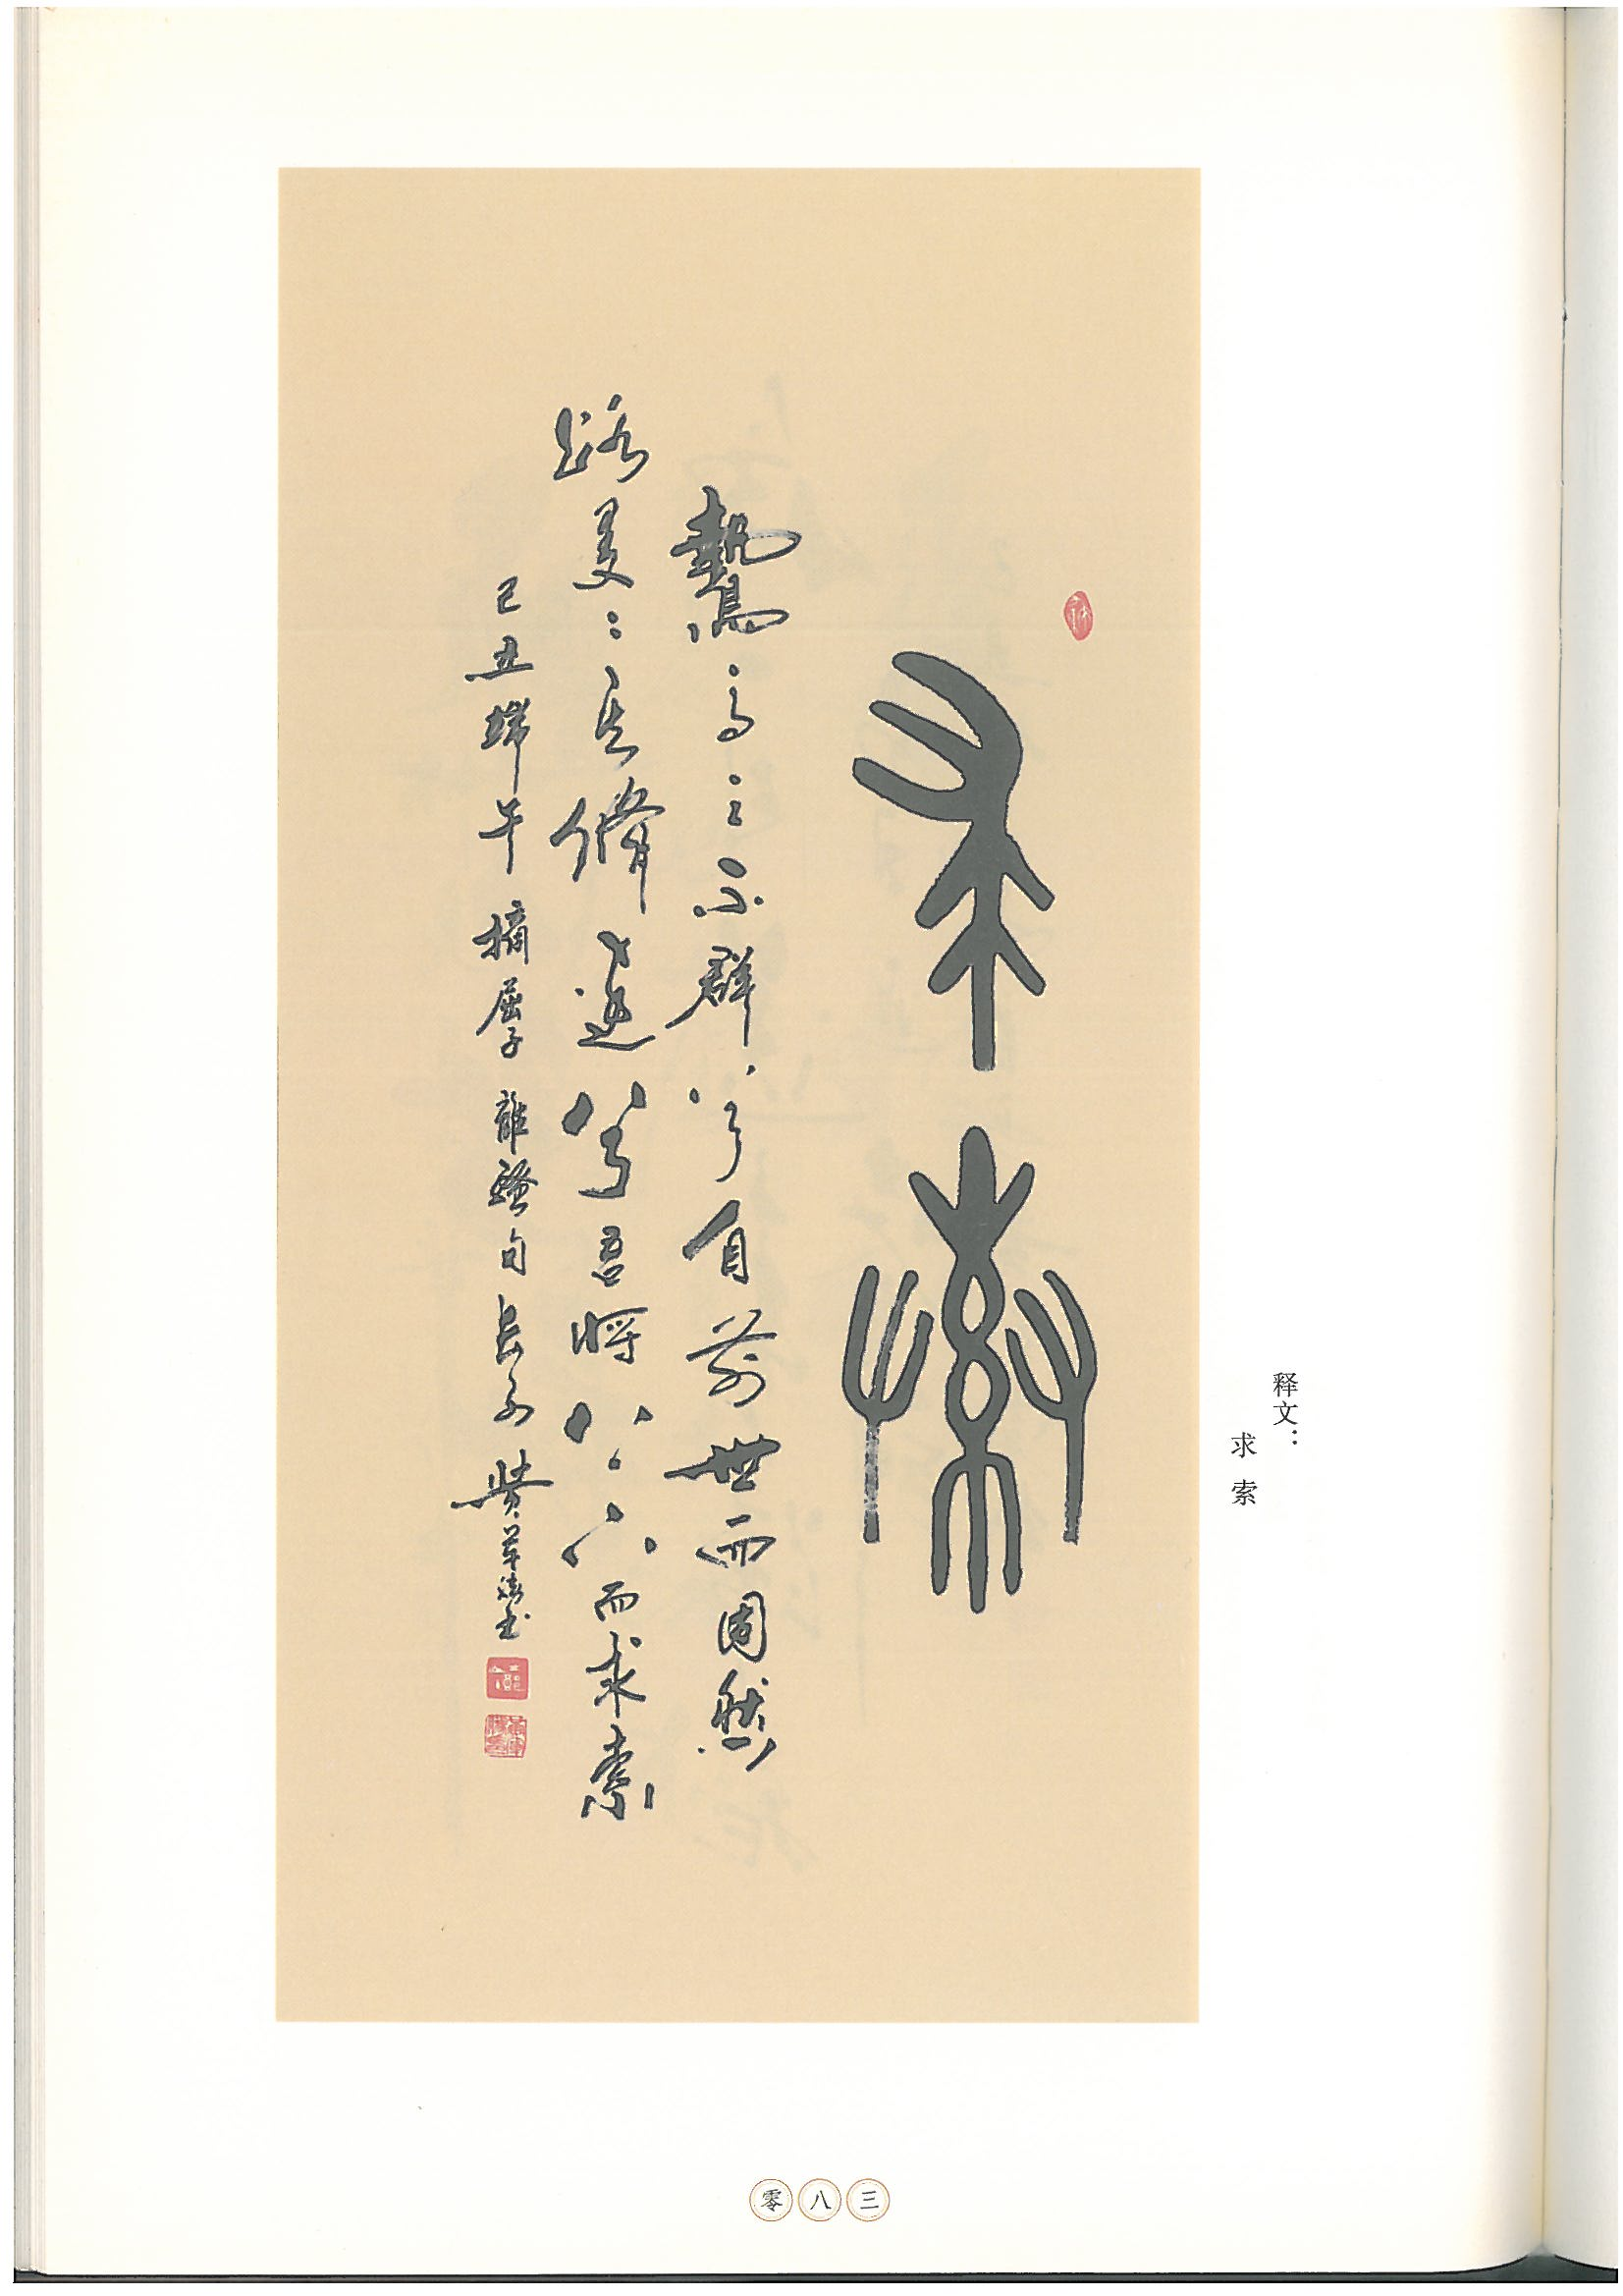 释文：
求 索
求索
鷙鳥之不群兮自前世而固然
路曼〻其脩遠兮吾將上下而求索
己丑端午摘屈子離騷句長子書
零八三